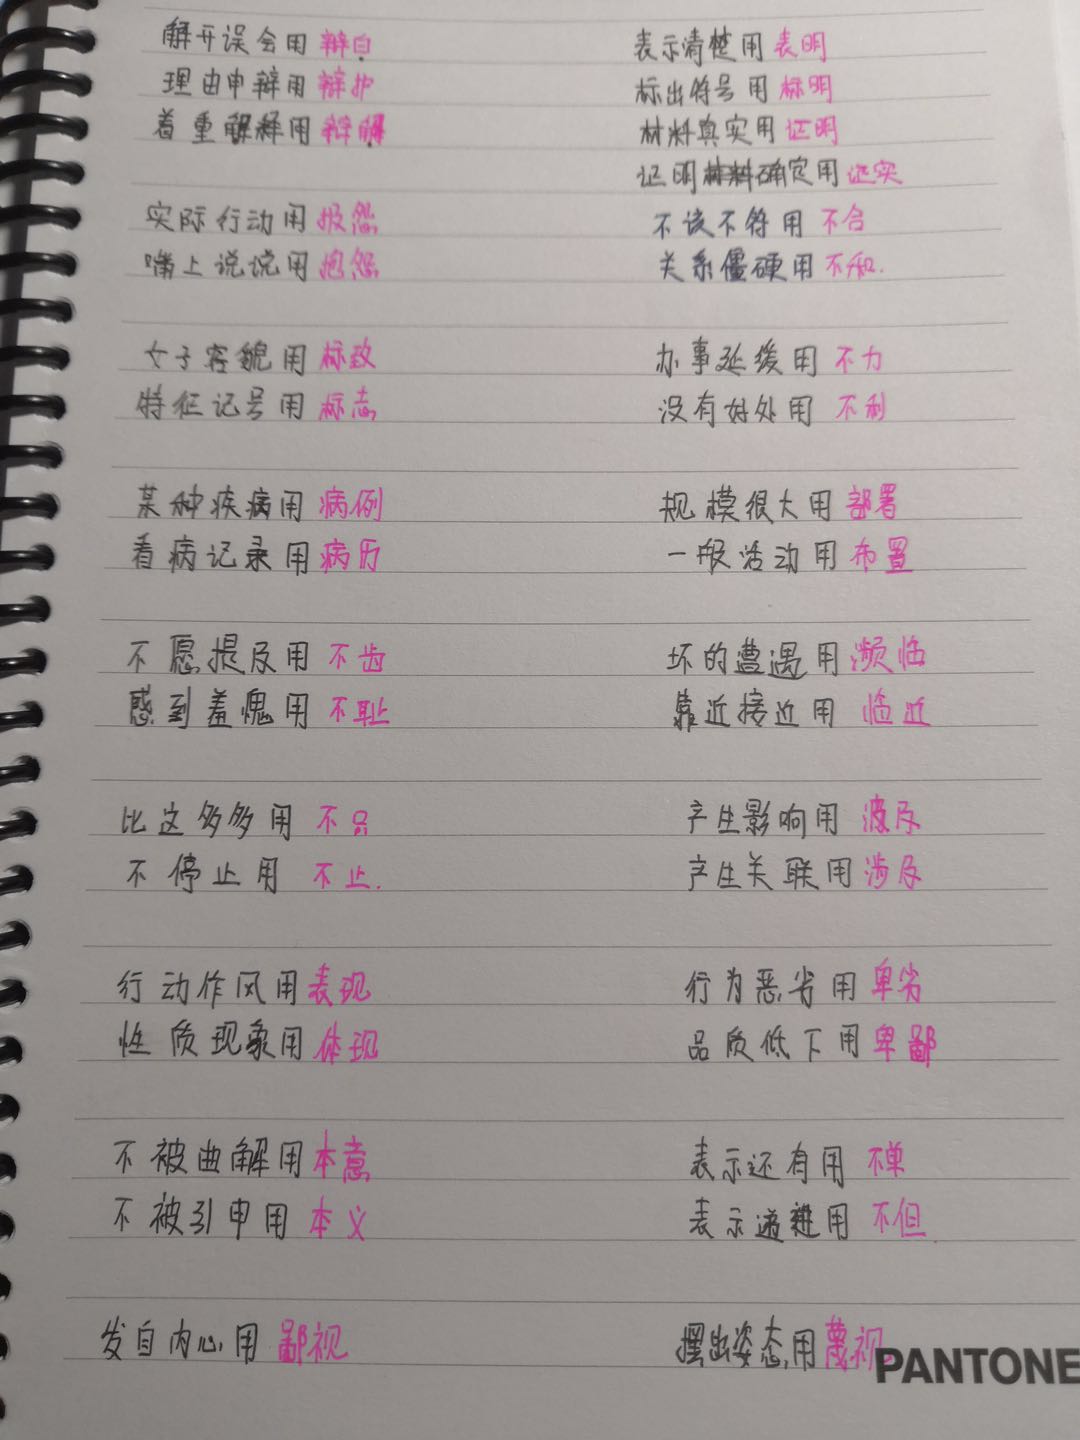 解开误会用 辩白
理由申辩用 辩护
着重解释用 辩解
实际行动用 报怨
嘴上说说用 抱怨
女子容貌用 标致
特征记号用 标志
某种疾病用 病例
看病记录用 病历
不愿提及用 不齿
感到羞愧用 不耻
比这多多用 不只
不停止用 不止.
行动作风用 表现
性质现象用 体现
不被曲解用 本意
不被引申用 本义
发自内心用 鄙视
表示清楚用 表明
标出符号用 标明
材料真实用 证明
证明确定用 证实
不该不符用 不合
关系僵硬用 不和.
办事延缓用 不力
没有好处用 不利
规模很大用 部署
一般活动用 布置
坏的遭遇用 濒临
靠近接近用 临近
产生影响用 波及
产生关联用 涉及
行为恶劣用 卑劣
品质低下用 卑鄙
表示还有用 不单
表示递进用 不但
摆出姿态用 蔑视
PANTONE